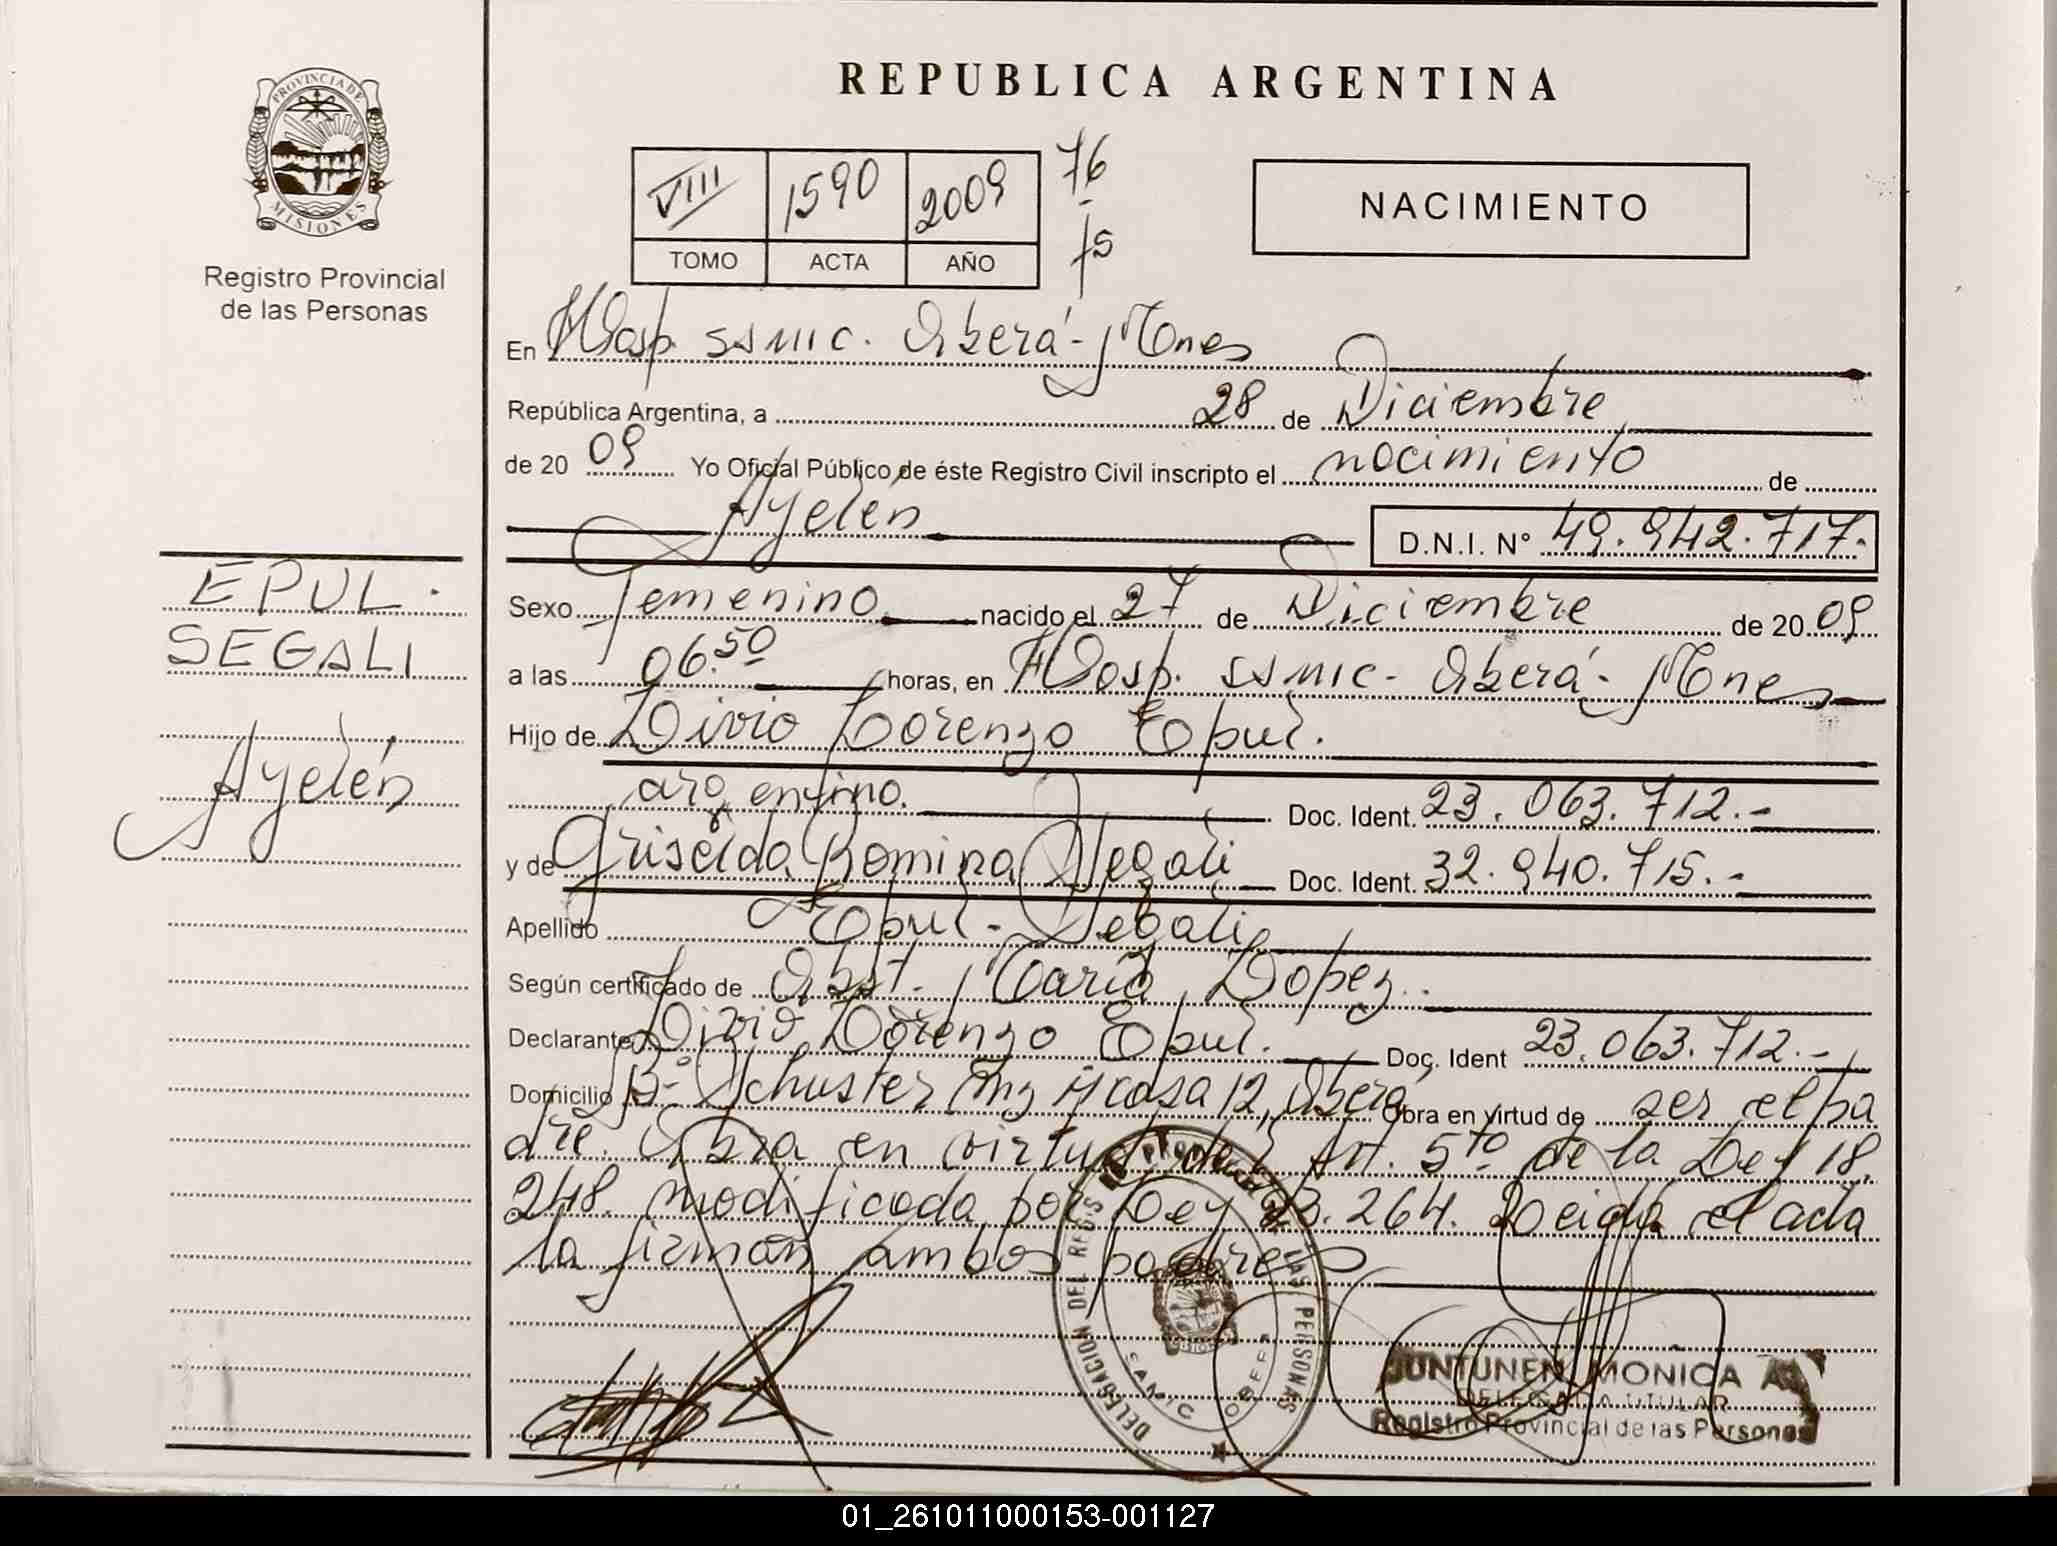 PROVINCIA DE
MISIONES
Registro Provincial
de las Personas
REPUBLICA ARGENTINA
VIII 1590 2009
TOMO ACTA AÑO
76
75
NACIMIENTO
En Hosp. SSMIC. Oberá - Mnes
República Argentina, a 28 de Diciembre
de 20 09 Yo Oficial Público de éste Registro Civil inscripto el nacimiento de
Ayelén D.N.I. N° 49.942.717.-
EPUL.
SEGALI
Ayelén
Sexo Femenino nacido el 27 de Diciembre de 20 09
a las 06.50 horas, en Hosp. SSMIC - Oberá - Mnes
Hijo de Livio Lorenzo Epul.
argentino. Doc. Ident. 23.063.712.-
y de Griselda Romina Segali Doc. Ident. 32.940.715.-
Apellido Epul - Segali
Según certificado de Obst. María Lopez.
Declarante Livio Lorenzo Epul. Doc. Ident 23.063.712.-
Domicilio B° Schuster Mz casa 12, Oberá Obra en virtud de ser el pa
dre. Obra en virtud del Art. 5to de la Ley 18.
248. modificada por Ley 23.264. Leida el acta
la firman ambos padres
DELEGACION DEL REGIS PROVINCIAL DE LAS PERSONAS
SAMIC OBERA
JUNTUNEN MONICA
DELEGADA TITULAR
Registro Provincial de las Personas
01_261011000153-001127